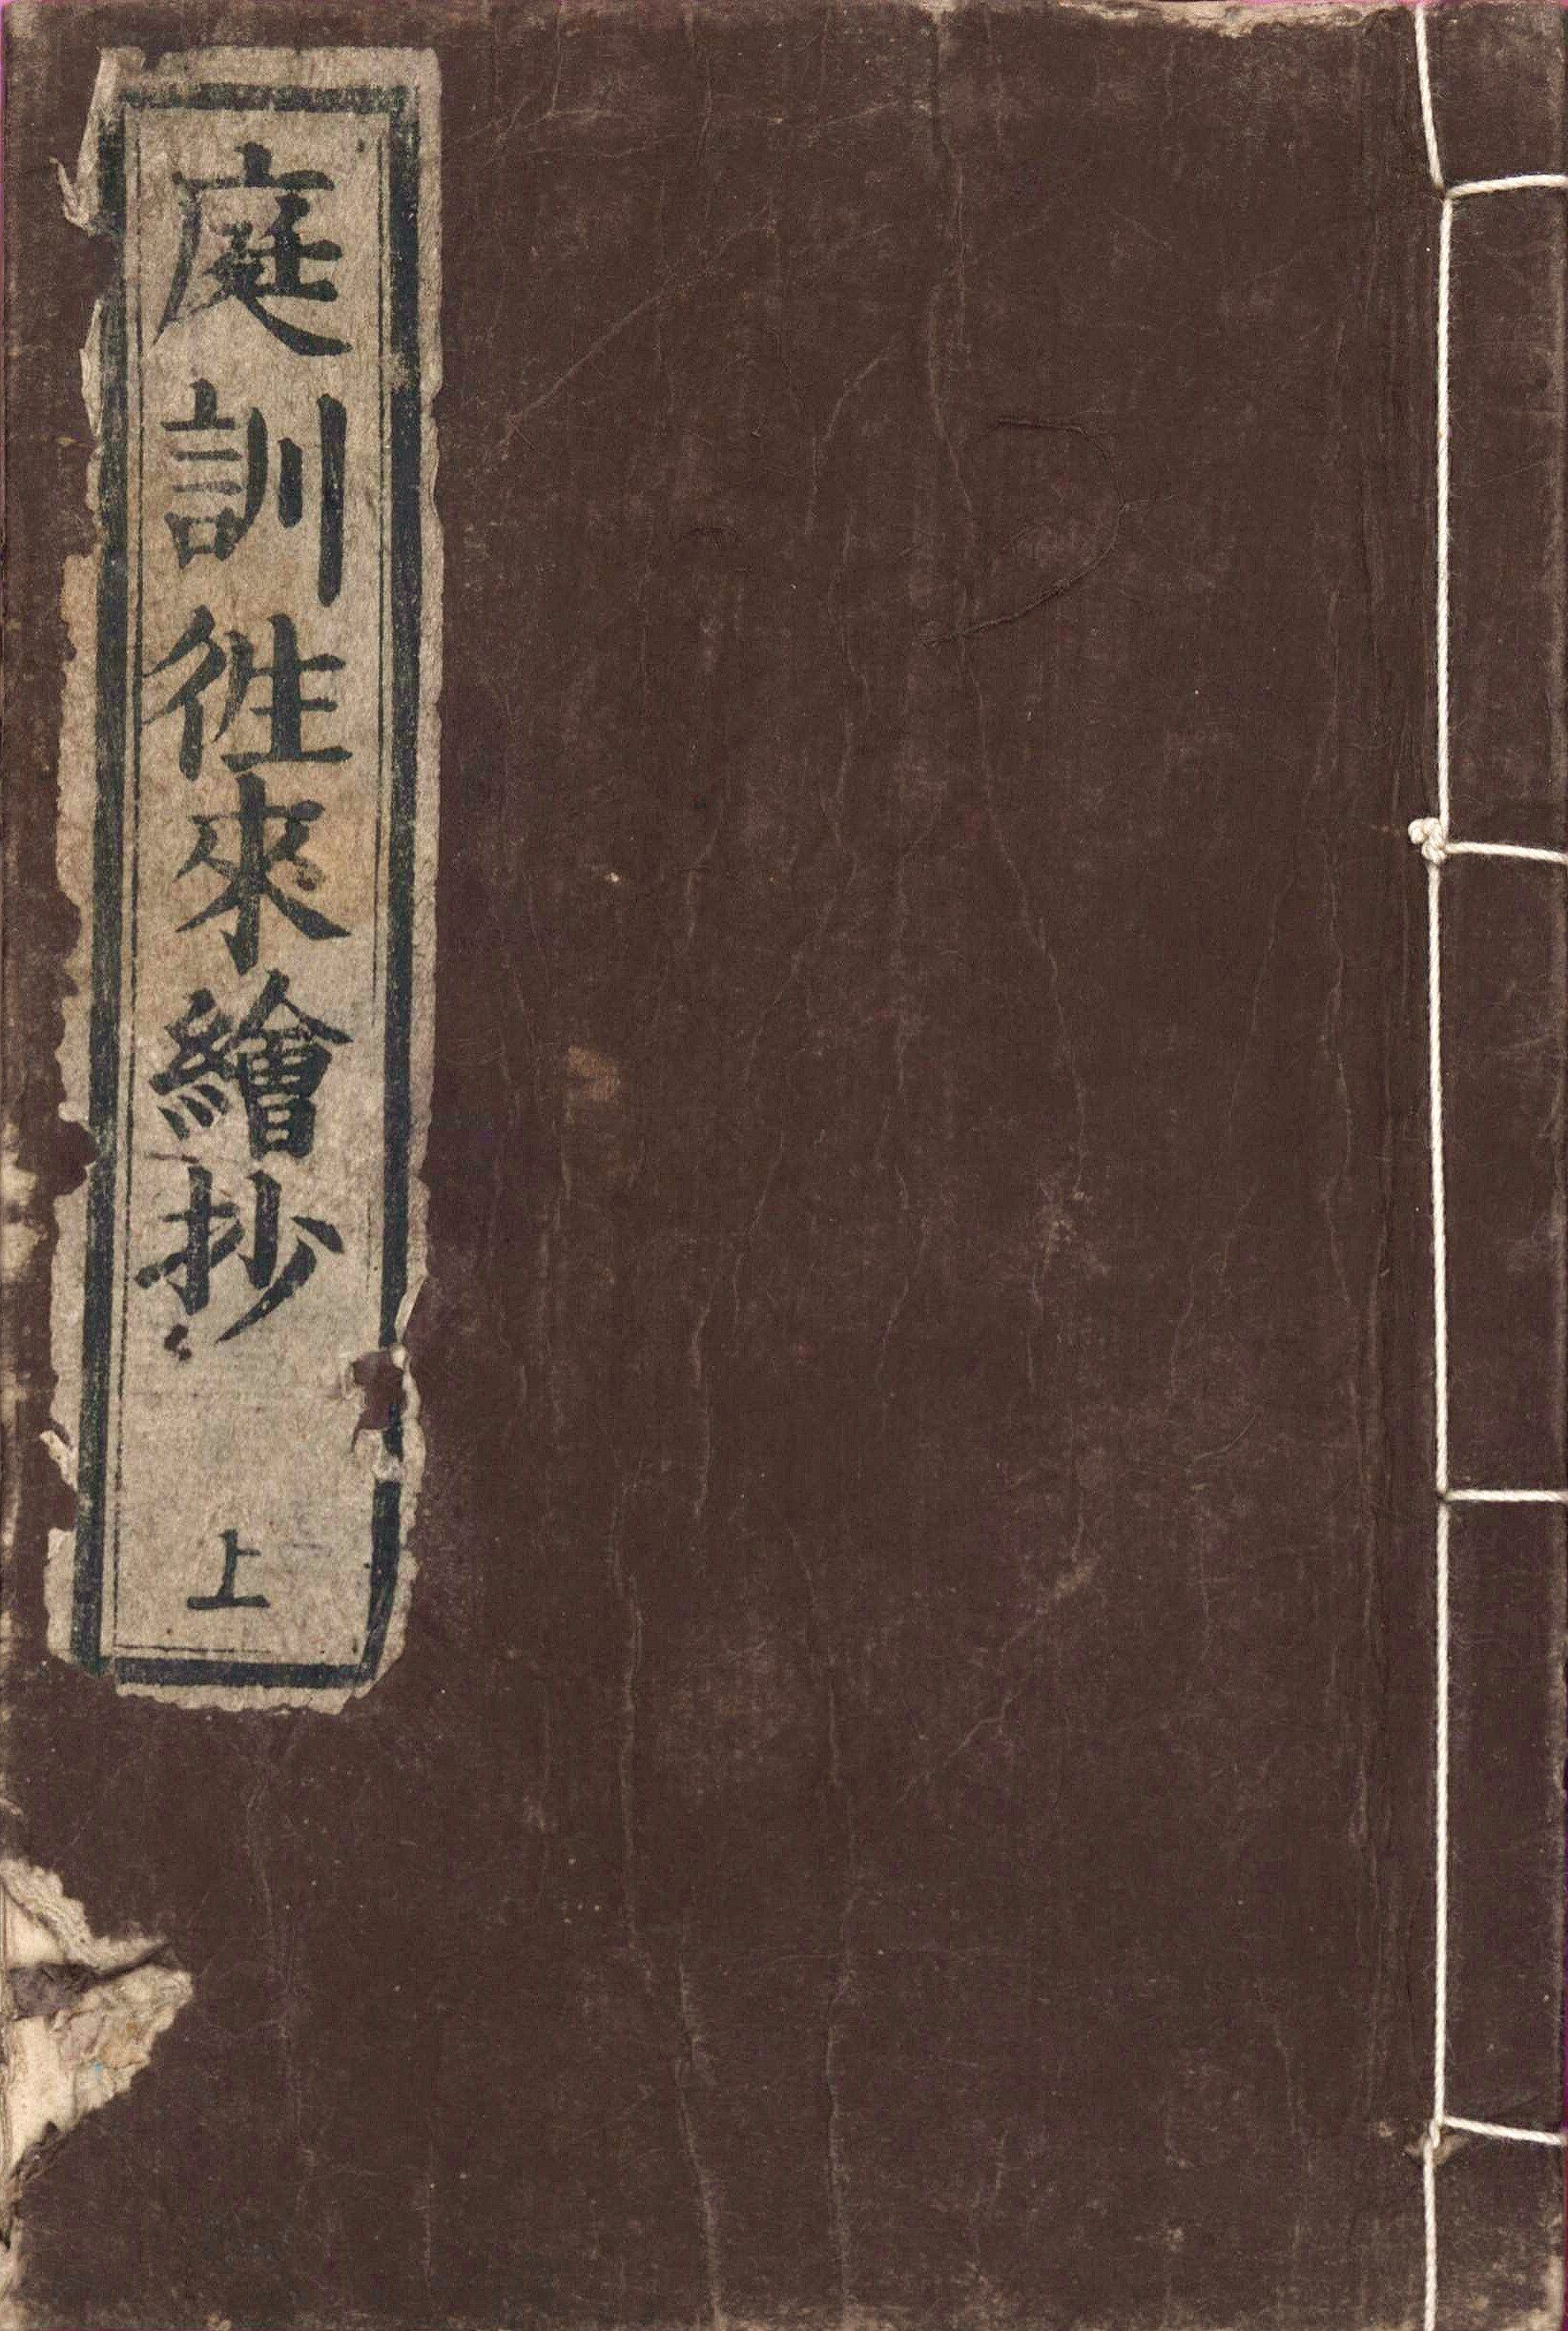 庭訓徃來繪抄 上